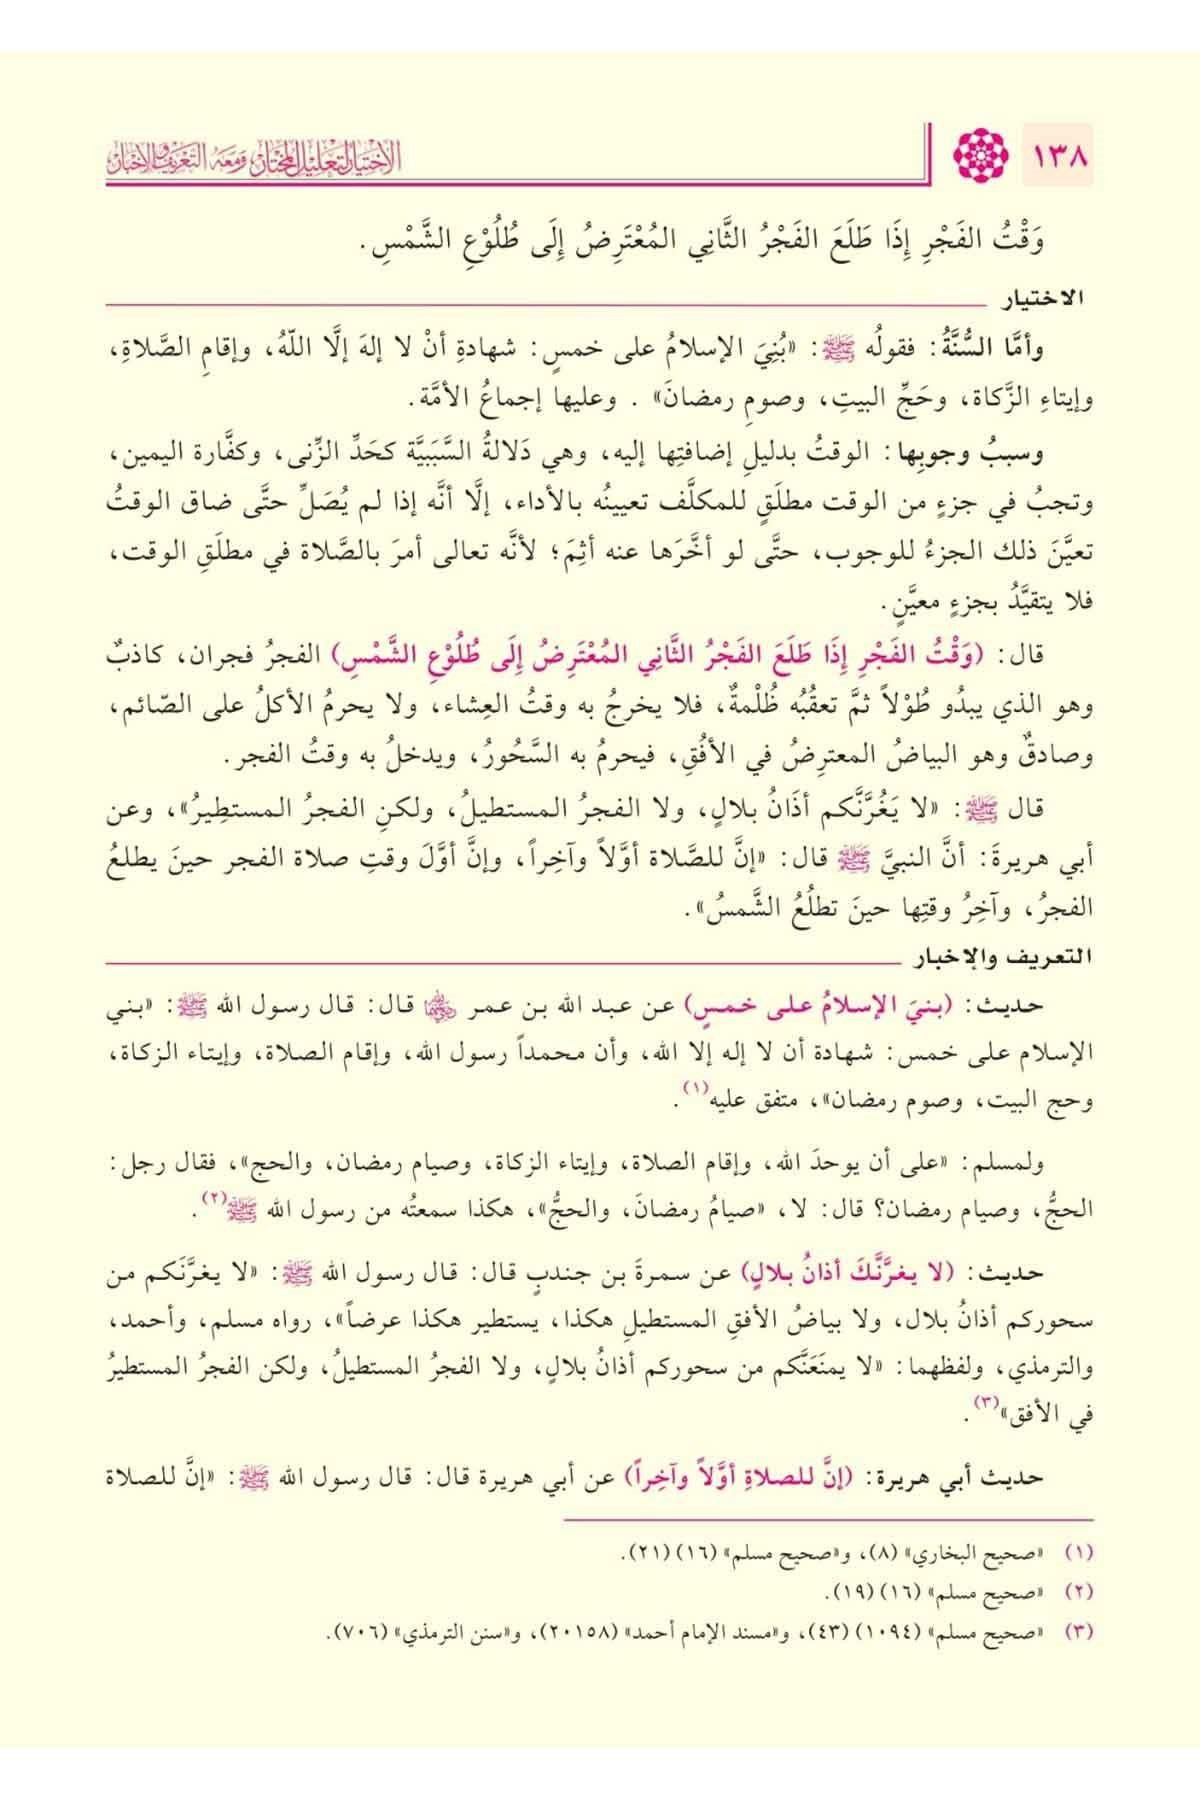 ١٣٨
الاختيار لتعليل المختار ومعه التعريف والإخبار
وَقْتُ الفَجْرِ إِذَا طَلَعَ الفَجْرُ الثَّانِي المُعْتَرِضُ إِلَى طُلُوْعِ الشَّمْسِ.
الاختيار
وأمَّا السُّنَّةُ: فقولُه ﷺ: «بُنِيَ الإسلامُ على خمسٍ: شهادةِ أنْ لا إلهَ إلَّا اللّهُ، وإقامِ الصَّلاةِ،
وإيتاءِ الزَّكاة، وحَجِّ البيتِ، وصومِ رمضانَ» . وعليها إجماعُ الأمَّة.
وسببُ وجوبِها: الوقتُ بدليلِ إضافتِها إليه، وهي دَلالةُ السَّبَبيَّة كحَدِّ الزِّنى، وكفَّارة اليمين،
وتجبُ في جزءٍ من الوقت مطلَقٍ للمكلَّف تعيينُه بالأداء، إلَّا أنَّه إذا لم يُصَلِّ حتَّى ضاق الوقتُ
تعيَّنَ ذلك الجزءُ للوجوب، حتَّى لو أخَّرَها عنه أثِمَ؛ لأنَّه تعالى أمرَ بالصَّلاة في مطلَقِ الوقت،
فلا يتقيَّدُ بجزءٍ معيَّنٍ.
قال: (وَقْتُ الفَجْرِ إِذَا طَلَعَ الفَجْرُ الثَّانِي المُعْتَرِضُ إِلَى طُلُوْعِ الشَّمْسِ) الفجرُ فجران، كاذبٌ
وهو الذي يبدُو طُوْلاً ثمَّ تعقُبُه ظُلْمةٌ، فلا يخرجُ به وقتُ العِشاء، ولا يحرمُ الأكلُ على الصّائم،
وصادقٌ وهو البياضُ المعترِضُ في الأفُقِ، فيحرمُ به السَّحُورُ، ويدخلُ به وقتُ الفجر.
قال ﷺ: «لا يَغُرَّنَّكم أذَانُ بلالٍ، ولا الفجرُ المستطيلُ، ولكنِ الفجرُ المستطِيرُ»، وعن
أبي هريرةَ: أنَّ النبيَّ ﷺ قال: «إنَّ للصَّلاة أوَّلاً وآخِراً، وإنَّ أوَّلَ وقتِ صلاة الفجر حينَ يطلعُ
الفجرُ، وآخِرُ وقتِها حينَ تطلُعُ الشَّمسُ».
التعريف والإخبار
حديث: (بنيَ الإسلامُ على خمسٍ) عن عبد الله بن عمر رضي الله عنهما قال: قال رسول الله ﷺ: «بني
الإسلام على خمس: شهادة أن لا إله إلا الله، وأن محمداً رسول الله، وإقام الصلاة، وإيتاء الزكاة،
وحج البيت، وصوم رمضان»، متفق عليه(١).
ولمسلم: «على أن يوحدَ الله، وإقام الصلاة، وإيتاء الزكاة، وصيام رمضان، والحج»، فقال رجل:
الحجُّ، وصيام رمضان؟ قال: لا، «صيامُ رمضانَ، والحجُّ»، هكذا سمعتُه من رسول الله ﷺ(٢).
حديث: (لا يغرَّنَّكَ أذانُ بلالٍ) عن سمرةَ بن جندبٍ قال: قال رسول الله ﷺ: «لا يغرَّنَكم من
سحوركم أذانُ بلال، ولا بياضُ الأفقِ المستطيلِ هكذا، يستطير هكذا عرضاً»، رواه مسلم، وأحمد،
والترمذي، ولفظهما: «لا يمنَعَنَّكم من سحوركم أذانُ بلالٍ، ولا الفجرُ المستطيلُ، ولكن الفجرُ المستطيرُ
في الأفق»(٣).
حديث أبي هريرة: (إنَّ للصلاةِ أوَّلاً وآخِراً) عن أبي هريرة قال: قال رسول الله ﷺ: «إنَّ للصلاة
(١) «صحيح البخاري» (٨)، و«صحيح مسلم» (١٦) (٢١).
(٢) «صحيح مسلم» (١٦) (١٩).
(٣) «صحيح مسلم» (١٠٩٤) (٤٣)، و«مسند الإمام أحمد» (٢٠١٥٨)، و«سنن الترمذي» (٧٠٦).